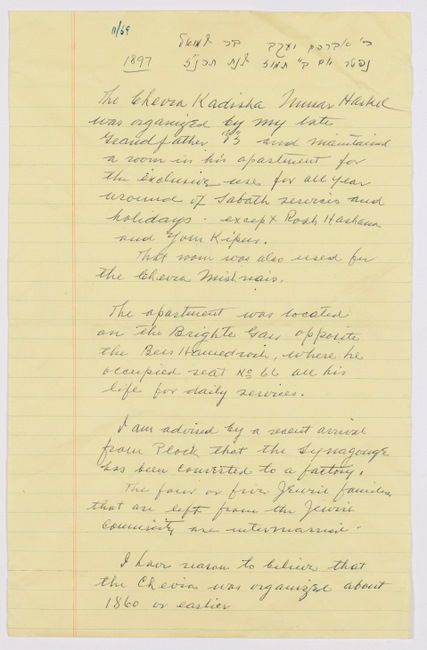 11/69
ר' אברהם יעקב בר שמואל
1897 נפטר יום ב' תמוז שנת תרנ"ז
The Chevra Kadisha Nunar Haskel
was organized by my late
Grandfather, and maintained
a room in his apartment for
the exclusive use for all year
around of Sabath services and
holidays - except Rosh Hashana
and Yom Kipur.
That room was also used for
the Chevra Mishnais.
The apartment was located
on the Brighte Gass opposite
the Beis Hamedrosh, where he
occupied seat No 66 all his
life for daily services.
I am advised by a recent arrival
from Plock that the Synagouge
has been converted to a factory.
The four or five Jewish families
that are left from the Jewish
Community are intermarried.
I have reason to believe that
the Chevra was organized about
1860 or earlier